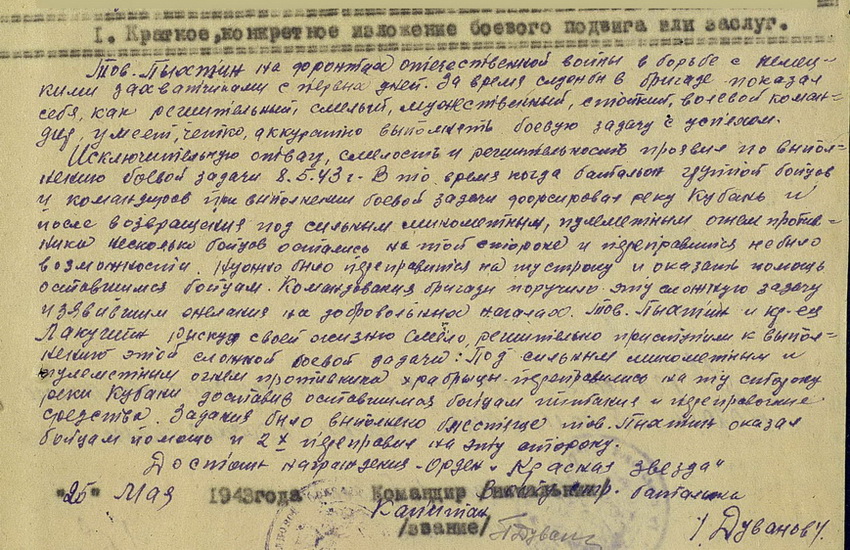 I. Краткое, конкретное изложение боевого подвига или заслуг.
Тов. Пыхтин на фронтах отечественной войны в борьбе с немец-
кими захватчиками с первых дней. За время службы в бригаде показал
себя, как решительный, смелый, мужественный, стойкий, волевой коман-
дир, умеет, четко, аккуратно выполнять боевую задачу с успехом.
Исключительную отвагу, смелость и решительность проявил по выпол-
нению боевой задачи 8.5.43 г. В то время когда батальон группой бойцов
и командиров при выполнении боевой задачи форсировал реку Кубань и
после возвращения под сильным минометным, пулеметным огнем против-
ника несколько бойцов остались на той стороне и переправится не было
возможности. Нужно было переправится на ту строну и оказать помощь
оставшимся бойцам. Командования бригади поручило эту сложную задачу
изявившим желания на добровольных началах. Тов. Пыхтин и кр-ец
Лакутин рискуя своей жизню смело, решительно приступили к выпол-
нению этой сложной боевой задачи: Под сильным минометным и
пулеметным огнем противника храбрецы переправились на ту сторону
реки Кубани доставив оставшимся бойцам питания и переправочние
средства. Задания было выполнено блестяще тов. Пыхтин оказал
бойцам помощь и 2х переправил на эту сторону.
Достоин награждения Орден "Красная звезда"
"26" Мая 1943 года Командир стр. баталиона
Капитан
/звание/ /Дуванов/.